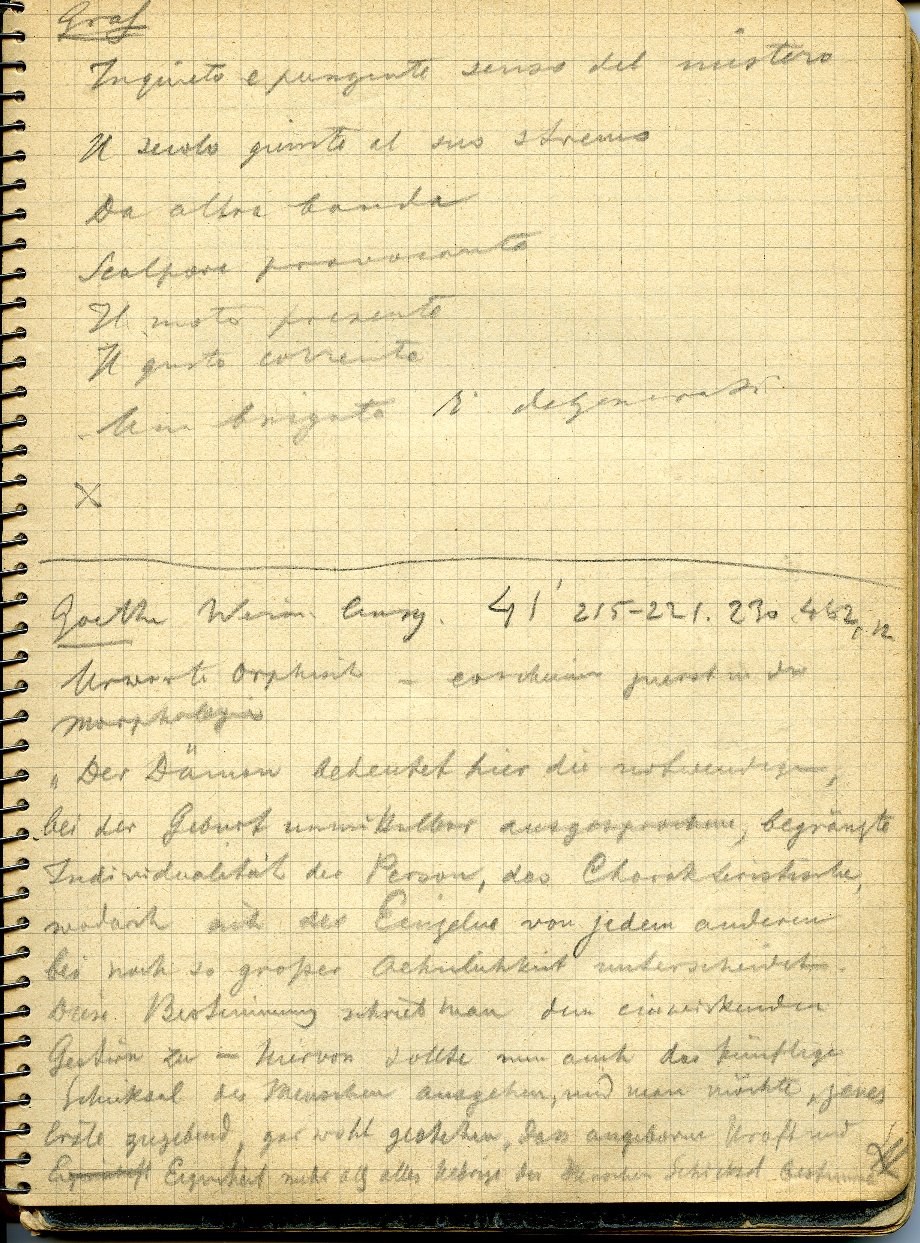 Graf
Inquieto e pungente senso del mistero
Il secolo giunto al suo stremo
Da altra banda
Scalpore provocante
Il moto presente
Il gusto corrente
Una brigata di degenerati
X
Goethe Weim. Ausg. 41' 215-221. 230. 482, 12
Urworte Orphisch – erscheinen zuerst in der
Morphologie
"Der Dämon bedeutet hier die notwendige,
bei der Geburt unmittelbar ausgesprochene, begränzte
Individualität der Person, das Charakteristische,
wodurch sich der Einzelne von jedem anderen
bei noch so großer Aehnlichkeit unterscheidet.
Diese Bestimmung schrieb man dem einwirkenden
Gestirn zu – Hiervon sollte nun auch das künftige
Schicksal des Menschen ausgehen, und man möchte, jenes
Erste zugebend, gar wohl gestehen, dass angeborne Kraft und
Eigenheit mehr als alles Uebrige des Menschen Schicksal bestimme